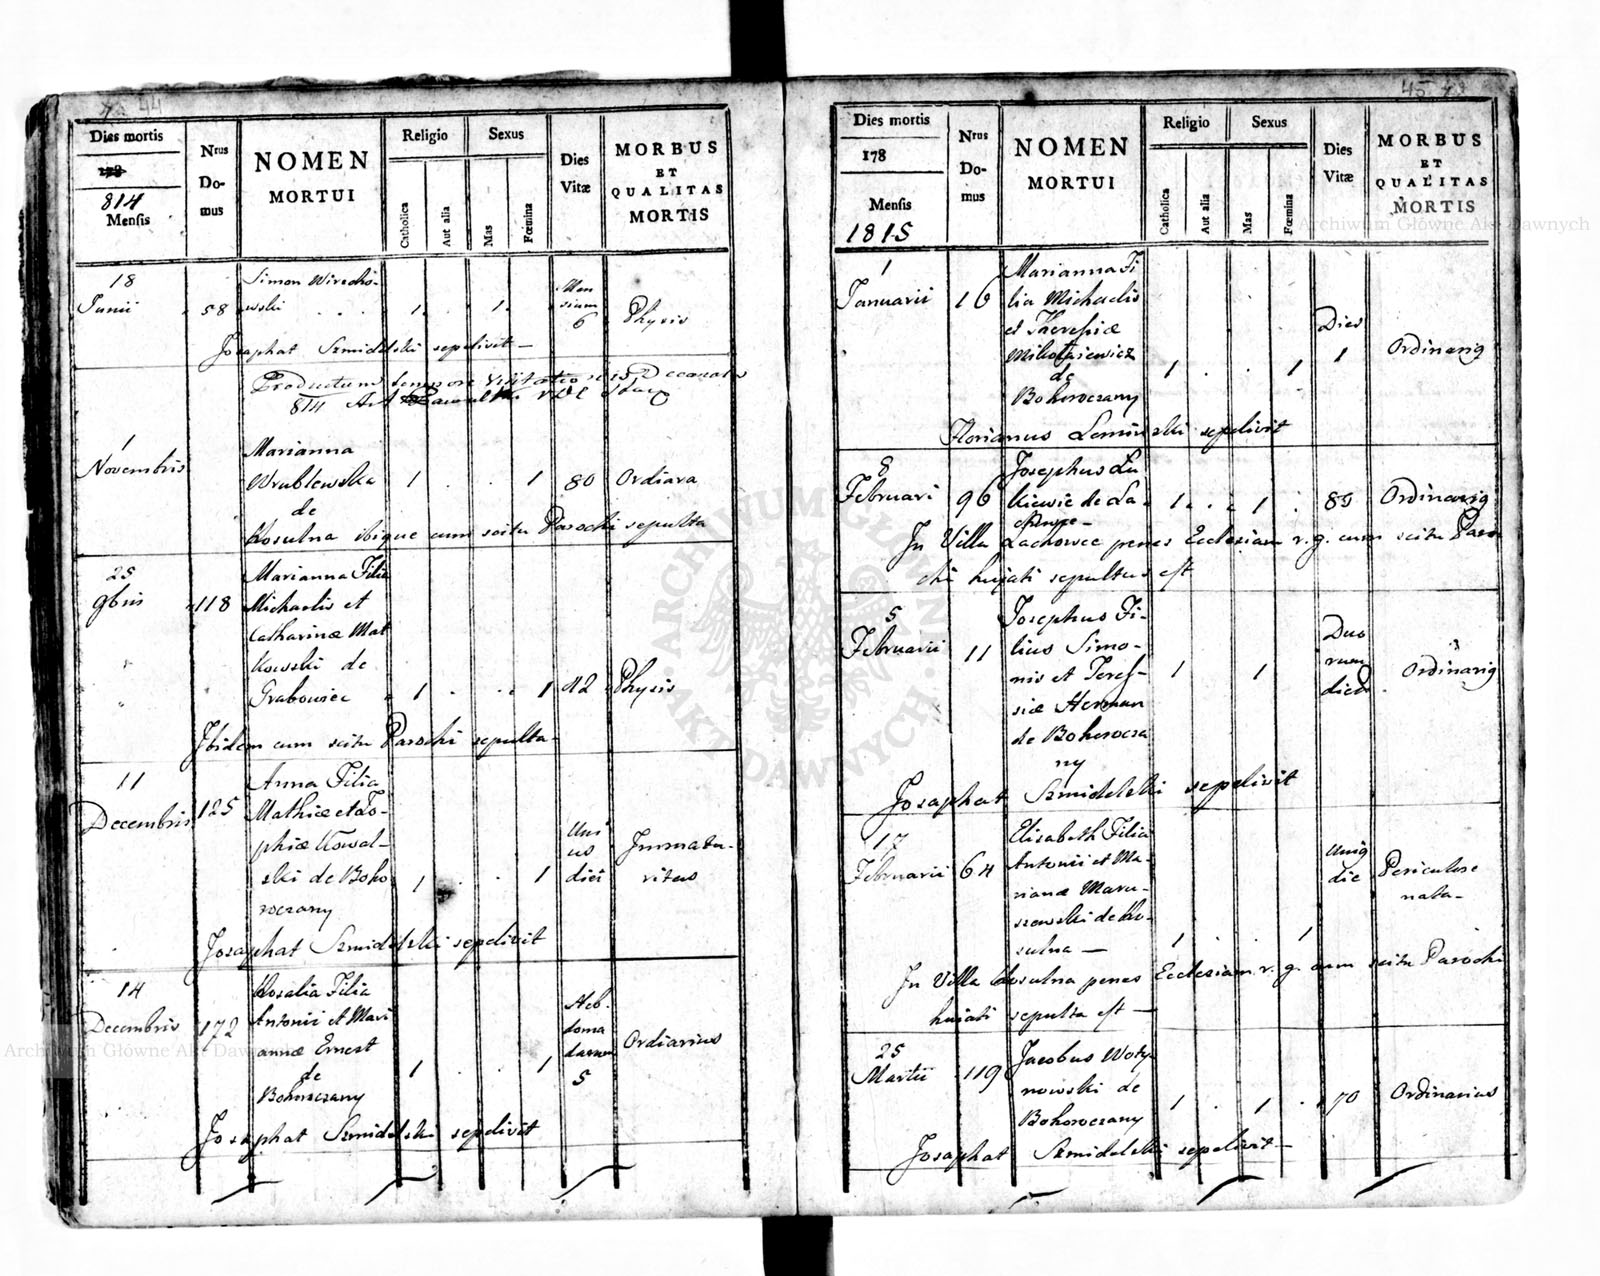 44
Dies mortis
814
Mensis
Nrus
Do-
mus
NOMEN
MORTUI
Religio
Catholica
Aut alia
Sexus
Mas
Fœmina
Dies
Vitæ
MORBUS
ET
QUALITAS
MORTIS
18
Junii
58
Simon Wirscho-
wski
1
1
Men
sium
6
Physis
Josaphat Szmidelski sepelivit
Productum tempore Visitationis Decanalis
814
1
Novembris
Marianna
Wrublewska
de
1
1
80
Ordiara
Hosulna ibique cum scitu Parochi sepulta
25
9bris
118
Marianna Filia
Michaelis et
Catharinæ Mat
kowski de
Grabowiec
1
1
42
Physis
Ibidem cum scitu Parochi sepulta
11
Decembris
125
Anna Filia
Mathiæ et So-
phiæ Kowal-
ski de Boho
roczany
1
1
Uni
us
diei
Immatu-
ritus
Josaphat Szmidelski sepelivit
14
Decembris
172
Rosalia Filia
Antonii et Mari
annæ Ernest
de
Bohoroczany
1
1
Heb
doma
darum
5
Ordiarius
Josaphat Szmidelski sepelivit
45
Dies mortis
178
Mensis
1815
Nrus
Do-
mus
NOMEN
MORTUI
Religio
Catholica
Aut alia
Sexus
Mas
Fœmina
Dies
Vitæ
MORBUS
ET
QUALITAS
MORTIS
1
Januarii
16
Marianna Fi
lia Michaelis
et Theresiæ
Mikołaiewicz
de
Bohoroczany
1
1
Dies
1
Ordinariq
Florianus Leminski sepelivit
8
Februari
96
Josephus Lu
kiewic de La-
1
1
89
Ordinariq
In Villa Lachowce penes Ecclesiam r. g. cum scitu Paro
chi hujati sepultus est
5
Februarii
11
Josephus Fi-
lius Simo-
nis et Teres-
siæ Herman
de Bohorocza
ny
1
1
Duo
rum
dies
Ordinariq
Josaphat Szmidelski sepelivit
17
Februarii
64
Elisabeth Filia
Antonii et Ma-
rianæ Maru-
szewski de Ho-
sulna
1
1
Uniq
die
Periculose
nata
In Villa Hosulna penes Ecclesiam r. g. cum scitu Parochi
huiati sepulta est
25
Martii
119
Jacobus Woty
nowski de
Bohoroczany
1
1
70
Ordinarius
Josaphat Szmidelski sepelivit
ARCHIWUM GŁÓWNE AKT DAWNYCH
Archiwum Główne Akt Dawnych
Archiwum Główne Akt Dawnych